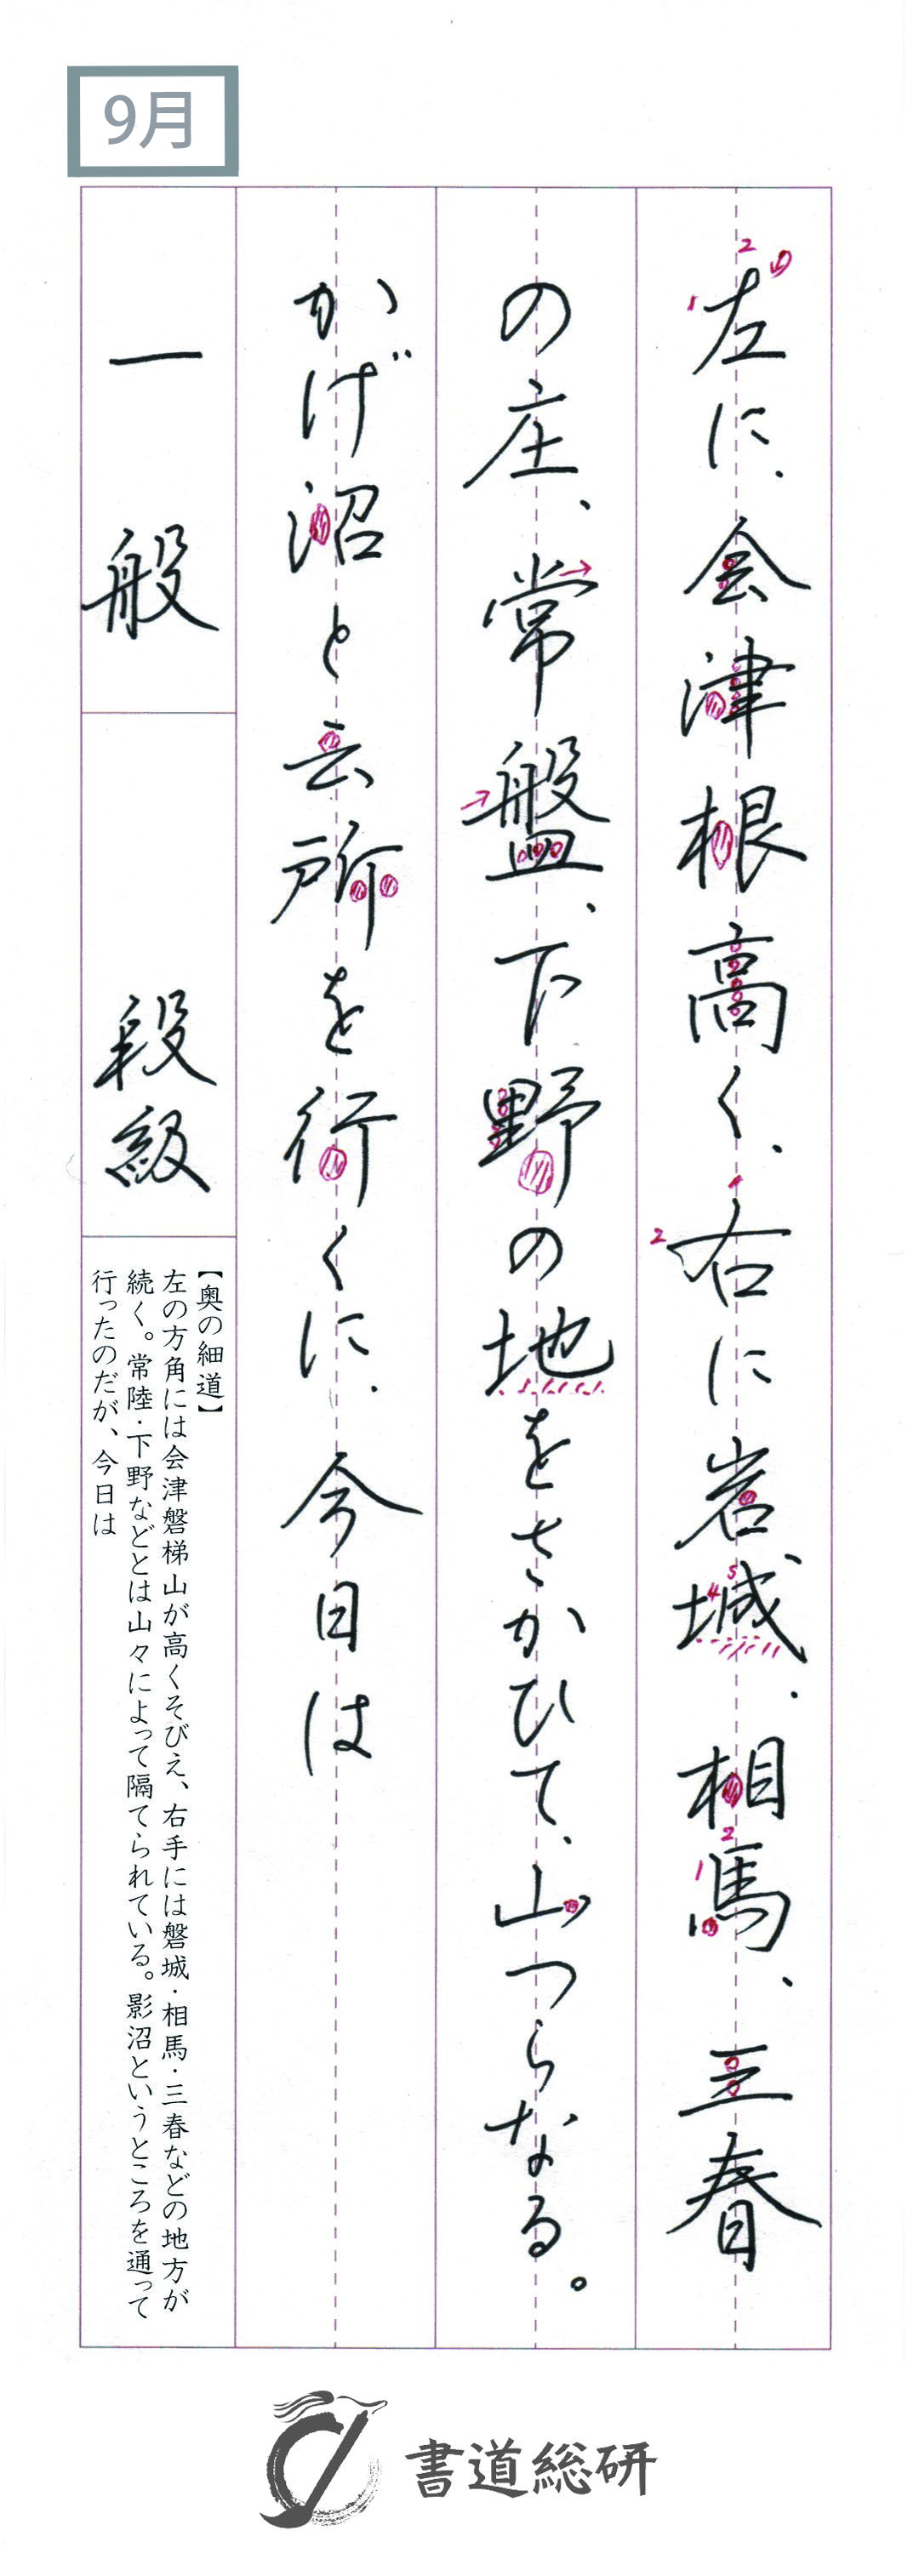 9月
左に、会津根高く、右に岩城、相馬、三春
の庄、常盤、下野の地をさかひて、山つらなる。
かげ沼と云所を行くに、今日は
一般
段級
【奥の細道】
左の方角には会津磐梯山が高くそびえ、右手には磐城・相馬・三春などの地方が
続く。常陸・下野などとは山々によって隔てられている。影沼というところを通って
行ったのだが、今日は
書道総研